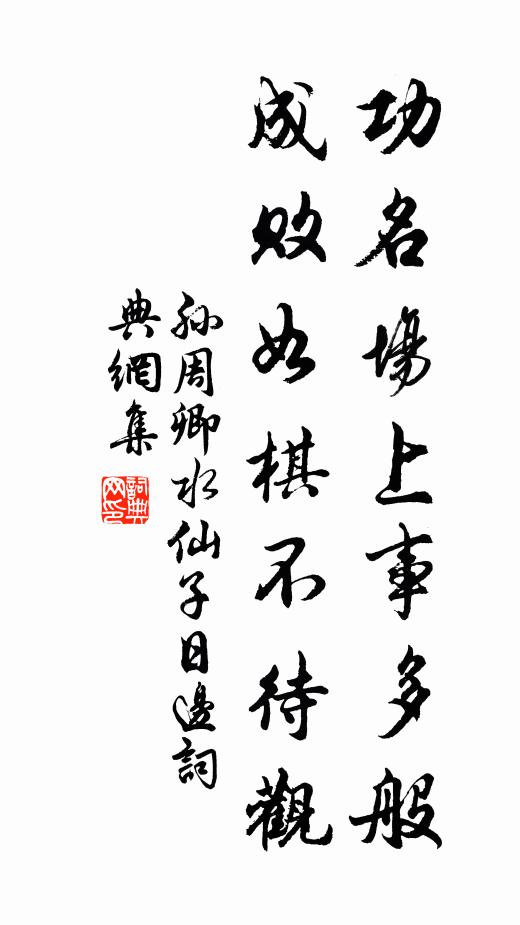 功名場上事多般
成敗如棋不待觀
孫周卿水仙子日邊詞
典網集
詞典网印